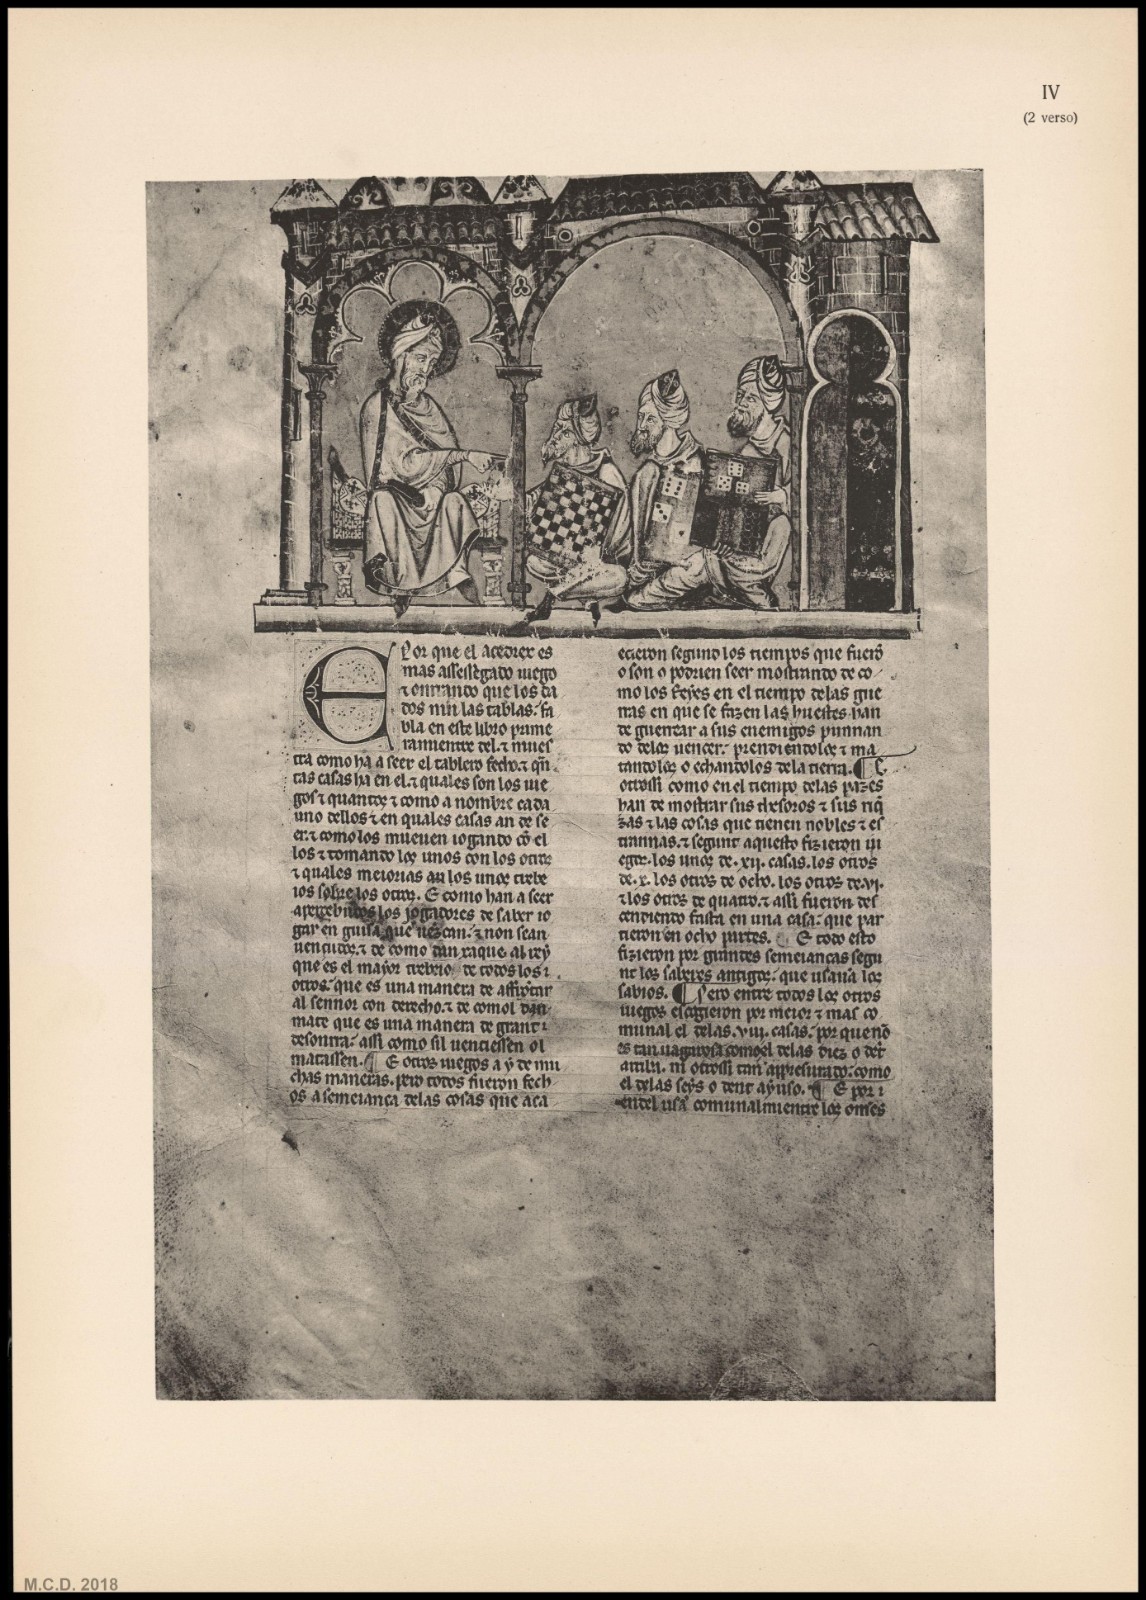 IV
(2 verso)
E por que el acedrex es
mas assessegado iuego
⁊ onrrando que los da
dos nin las tablas. fa
bla en este libro prime
ramientre del. ⁊ mues
tra como ha a seer el tablero fecho. ⁊ qñ
tas casas ha en el. ⁊ quales son los iue
gos ⁊ quantos ⁊ como a nombre cada
uno dellos ⁊ en quales casas an de se
er. ⁊ como los mueuen iogando cõ el
los ⁊ tomando los unos con los otros
⁊ quales meiorias an los unos trebe
ios sobre los otros. E como han a seer
apercebudos los jogadores de saber io
gar en guisa que uenzcan. ⁊ non sean
uençudos. ⁊ de como dan xaque al rey
que es el mayor trebeio de todos los
otros. que es una manera de affrontar
al sennor con derecho. ⁊ de comol dan
mate que es una manera de grant
desonrra. assi como sil uenciessen ol
matassen. ¶ E otros iuegos a y de mu
chas maneras. pero todos fueron fech
os a semeiança delas cosas que aca
ecieron segund los tiempos que fuerõ
o son o podrien seer mostrando de co
mo los Reyes en el tiempo delas gue
rras en que se fazen las huestes han
de guerrear a sus enemigos punnan
do delos uencer. prendiendolos ⁊ ma
tandolos o echandolos dela tierra. ¶ E
otrossi como en el tiempo delas pazes
han de mostrar sus thesoros ⁊ sus riq̃
zas ⁊ las cosas que tienen nobles ⁊ es
trannas. ⁊ segunt aquesto fizieron iu
egos. los unos de .xii. casas. los otros
de .x. los otros de ocho. los otros de .vi.
⁊ los otros de quatro. ⁊ assi fueron des
cendiendo fasta en una casa. que par
tieron en ocho partes. E todo esto
fizieron por grandes semeianças segu
nt los saberes antigos. que usauã los
sabios. ¶ Pero entre todos los otros
iuegos escogieron por meior ⁊ mas co
munal el delas .viii. casas. por que nõ
es tan uagarosa comoel delas diez o dent
arriba. ni otrossi tan apressurado. como
el delas seys o dent ayuso. ¶ E por
endel usã comunalmientre los omnes
M.C.D. 2018